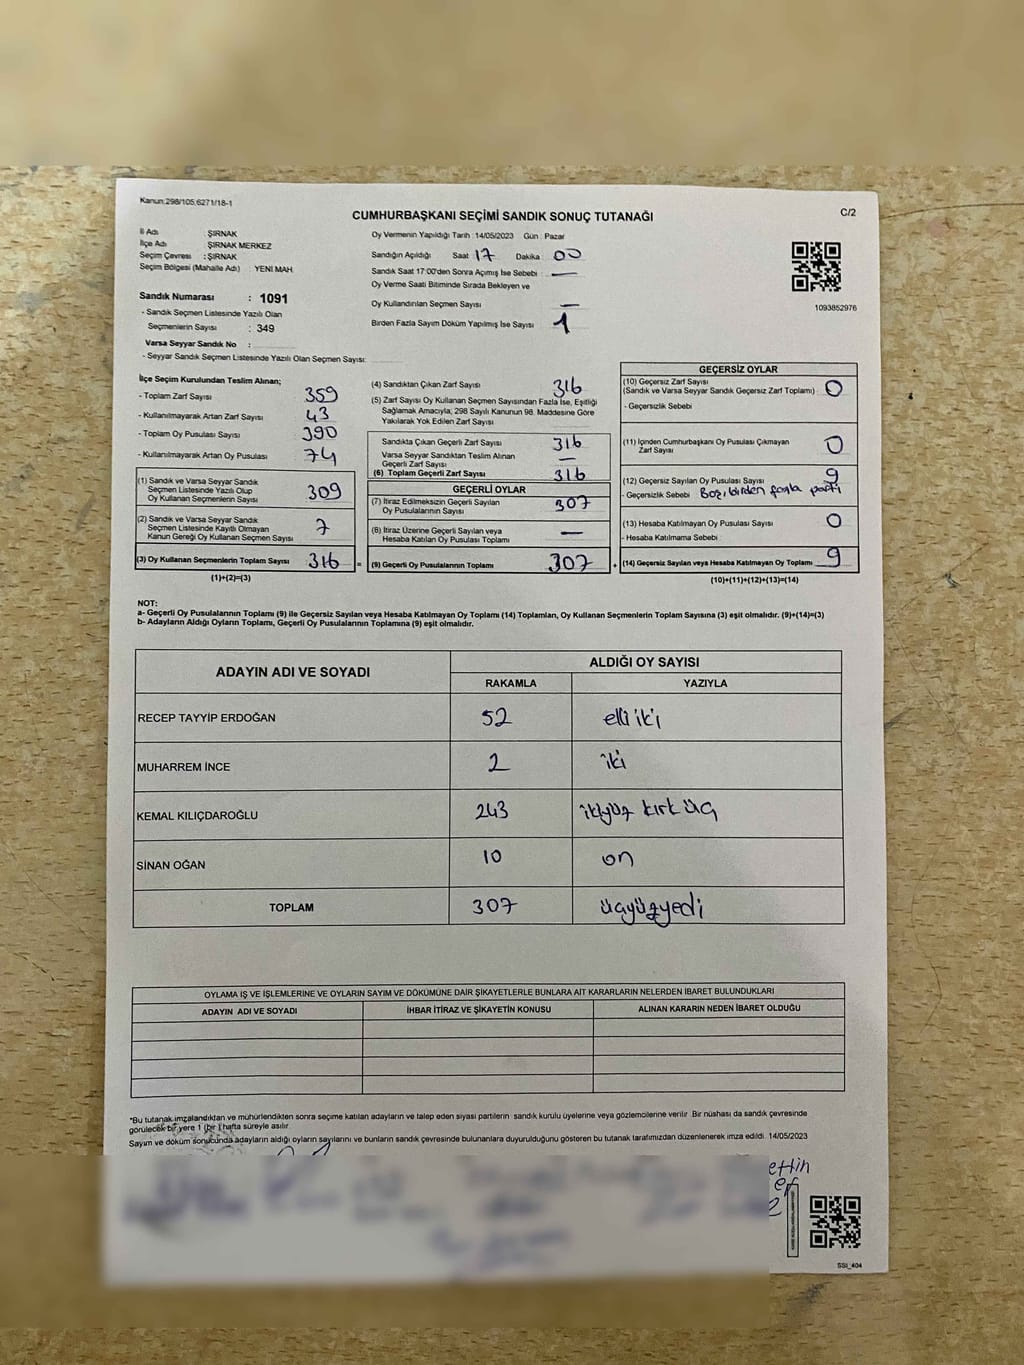 Kanun:298/105,6271/18-1
CUMHURBAŞKANI SEÇİMİ SANDIK SONUÇ TUTANAĞI
C/2
İl Adı : ŞIRNAK
İlçe Adı : ŞIRNAK MERKEZ
Seçim Çevresi : ŞIRNAK
Seçim Bölgesi (Mahalle Adı) YENİ MAH.
Sandık Numarası : 1091
- Sandık Seçmen Listesinde Yazılı Olan
Seçmenlerin Sayısı : 349
Varsa Seyyar Sandık No :
- Seyyar Sandık Seçmen Listesinde Yazılı Olan Seçmen Sayısı:
Oy Vermenin Yapıldığı Tarih : 14/05/2023 Gün : Pazar
Sandığın Açıldığı Saat 17 Dakika 00
Sandık Saat 17:00'den Sonra Açılmış İse Sebebi : —
Oy Verme Saati Bitiminde Sırada Bekleyen ve
Oy Kullandırılan Seçmen Sayısı —
Birden Fazla Sayım Döküm Yapılmış İse Sayısı 1
1093852976
İlçe Seçim Kurulundan Teslim Alınan;
- Toplam Zarf Sayısı 359
- Kullanılmayarak Artan Zarf Sayısı 43
- Toplam Oy Pusulası Sayısı 390
- Kullanılmayarak Artan Oy Pusulası 74
(1) Sandık ve Varsa Seyyar Sandık
Seçmen Listesinde Yazılı Olup
Oy Kullanan Seçmenlerin Sayısı 309
(2) Sandık ve Varsa Seyyar Sandık
Seçmen Listesinde Kayıtlı Olmayan
Kanun Gereği Oy Kullanan Seçmen Sayısı 7
(3) Oy Kullanan Seçmenlerin Toplam Sayısı 316
(1)+(2)=(3)
=
(4) Sandıktan Çıkan Zarf Sayısı 316
(5) Zarf Sayısı Oy Kullanan Seçmen Sayısından Fazla İse, Eşitliği
Sağlamak Amacıyla, 298 Sayılı Kanunun 98. Maddesine Göre
Yakılarak Yok Edilen Zarf Sayısı
Sandıkta Çıkan Geçerli Zarf Sayısı 316
Varsa Seyyar Sandıktan Teslim Alınan
Geçerli Zarf Sayısı —
(6) Toplam Geçerli Zarf Sayısı 316
GEÇERLİ OYLAR
(7) İtiraz Edilmeksizin Geçerli Sayılan
Oy Pusulalarının Sayısı 307
(8) İtiraz Üzerine Geçerli Sayılan veya
Hesaba Katılan Oy Pusulası Toplamı —
(9) Geçerli Oy Pusulalarının Toplamı 307
+
GEÇERSİZ OYLAR
(10) Geçersiz Zarf Sayısı
(Sandık ve Varsa Seyyar Sandık Geçersiz Zarf Toplamı) 0
- Geçersizlik Sebebi
(11) İçinden Cumhurbaşkanı Oy Pusulası Çıkmayan
Zarf Sayısı 0
(12) Geçersiz Sayılan Oy Pusulası Sayısı 9
- Geçersizlik Sebebi Boş, birden fazla parti
(13) Hesaba Katılmayan Oy Pusulası Sayısı 0
- Hesaba Katılmama Sebebi
(14) Geçersiz Sayılan veya Hesaba Katılmayan Oy Toplamı 9
(10)+(11)+(12)+(13)=(14)
NOT:
a- Geçerli Oy Pusulalarının Toplamı (9) ile Geçersiz Sayılan veya Hesaba Katılmayan Oy Toplamı (14) Toplamları, Oy Kullanan Seçmenlerin Toplam Sayısına (3) eşit olmalıdır. (9)+(14)=(3)
b- Adayların Aldığı Oyların Toplamı, Geçerli Oy Pusulalarının Toplamına (9) eşit olmalıdır.
ADAYIN ADI VE SOYADI
ALDIĞI OY SAYISI
RAKAMLA YAZIYLA
RECEP TAYYİP ERDOĞAN 52 elli iki
MUHARREM İNCE 2 iki
KEMAL KILIÇDAROĞLU 243 ikiyüz kırk üç
SİNAN OĞAN 10 on
TOPLAM 307 üçyüzyedi
OYLAMA İŞ VE İŞLEMLERİNE VE OYLARIN SAYIM VE DÖKÜMÜNE DAİR ŞİKAYETLERLE BUNLARA AİT KARARLARIN NELERDEN İBARET BULUNDUKLARI
ADAYIN ADI VE SOYADI İHBAR İTİRAZ VE ŞİKAYETİN KONUSU ALINAN KARARIN NEDEN İBARET OLDUĞU
*Bu tutanak imzalandıktan ve mühürlendikten sonra seçime katılan adayların ve talep eden siyasi partilerin sandık kurulu üyelerine veya gözlemcilerine verilir. Bir nüshası da sandık çevresinde
görülecek bir yere 1 (bir) hafta süreyle asılır.
Sayım ve döküm sonucunda adayların aldığı oyların sayılarını ve bunların sandık çevresinde bulunanlara duyurulduğunu gösteren bu tutanak tarafımızdan düzenlenerek imza edildi. 14/05/2023
ettin
SSI_404